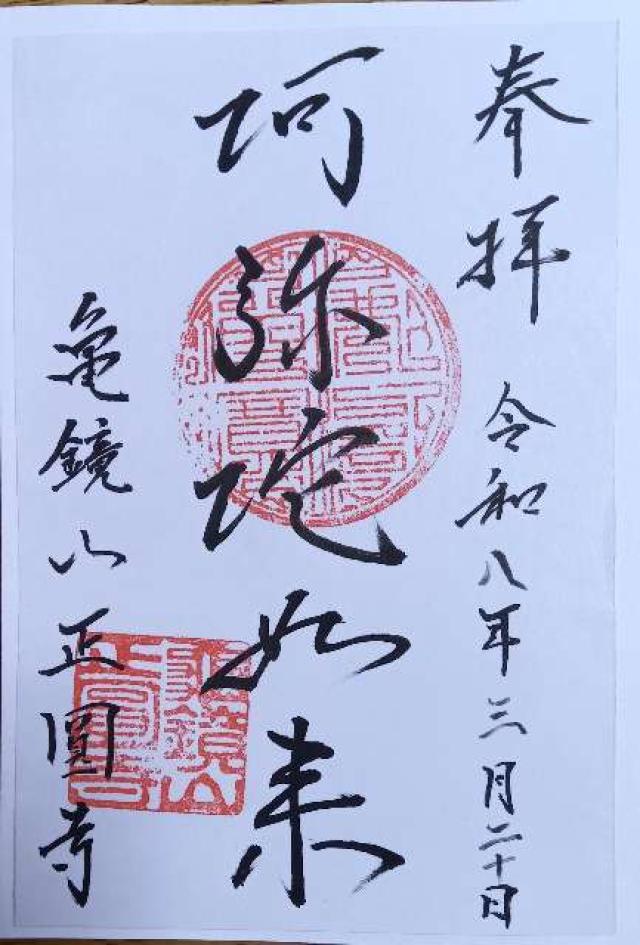 奉拝　令和八年三月二十日
阿弥陀如来
亀鏡山正圓寺